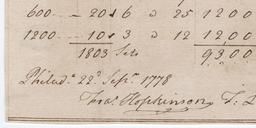 600 — 20 & 6 Ɔ 25 1200
1200 — 10 & 3 Ɔ 12 1200
1803 Sets 9300
Philadª 22ᵈ Septʳ 1778
Fraˢ Hopkinson T: L